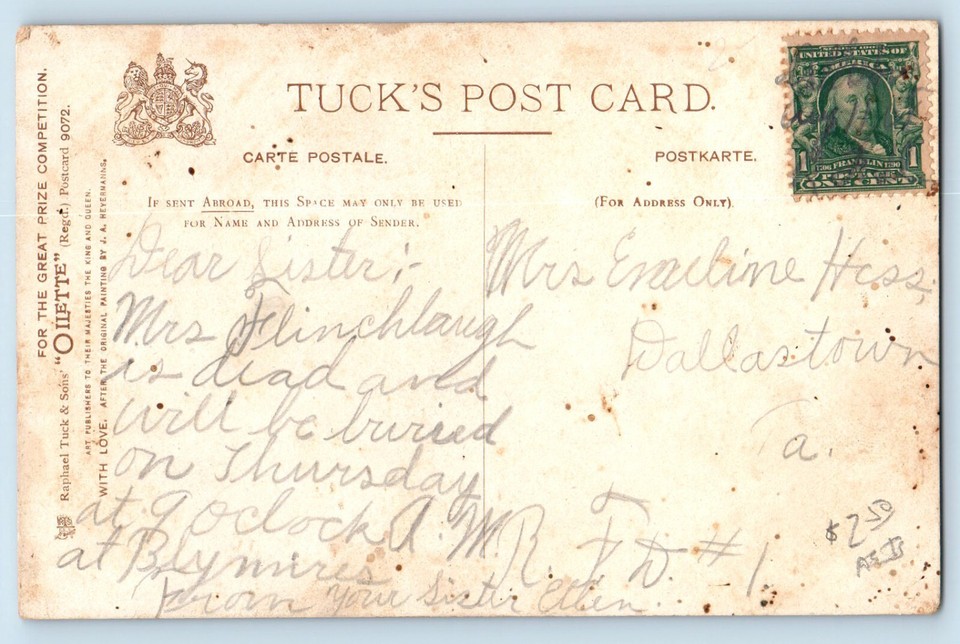 TUCK'S POST CARD.
CARTE POSTALE.
POSTKARTE.
IF SENT ABROAD, THIS SPACE MAY ONLY BE USED
FOR NAME AND ADDRESS OF SENDER.
(FOR ADDRESS ONLY).
FOR THE GREAT PRIZE COMPETITION.
Raphael Tuck & Sons' "OILETTE" (Regd.) Postcard 9072.
ART PUBLISHERS TO THEIR MAJESTIES THE KING AND QUEEN.
WITH LOVE. AFTER THE ORIGINAL PAINTING BY J. A. HEYERMANNS.
UNITED STATES OF
AMERICA
1 FRANKLIN 1
POSTAGE
ONE CENT
Dear Sister;-
Mrs Flinchbaugh
is dead and
will be buried
on Thursday
at 9 oclock A.M.
at Blymires
From Your Sister Ellen.
Mrs Emeline Hess,
Dallastown
a.
R. F. D. # 1
$ 2 50